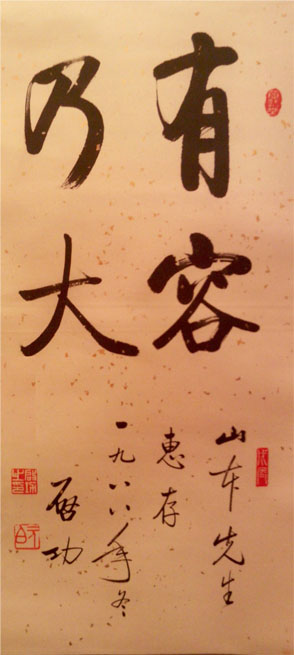 有容
乃大
山本先生
惠存
一九八八年冬
启功